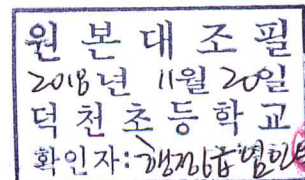 원본대조필
2018년 11월 20일
덕천초등학교
확인자: 행정6급